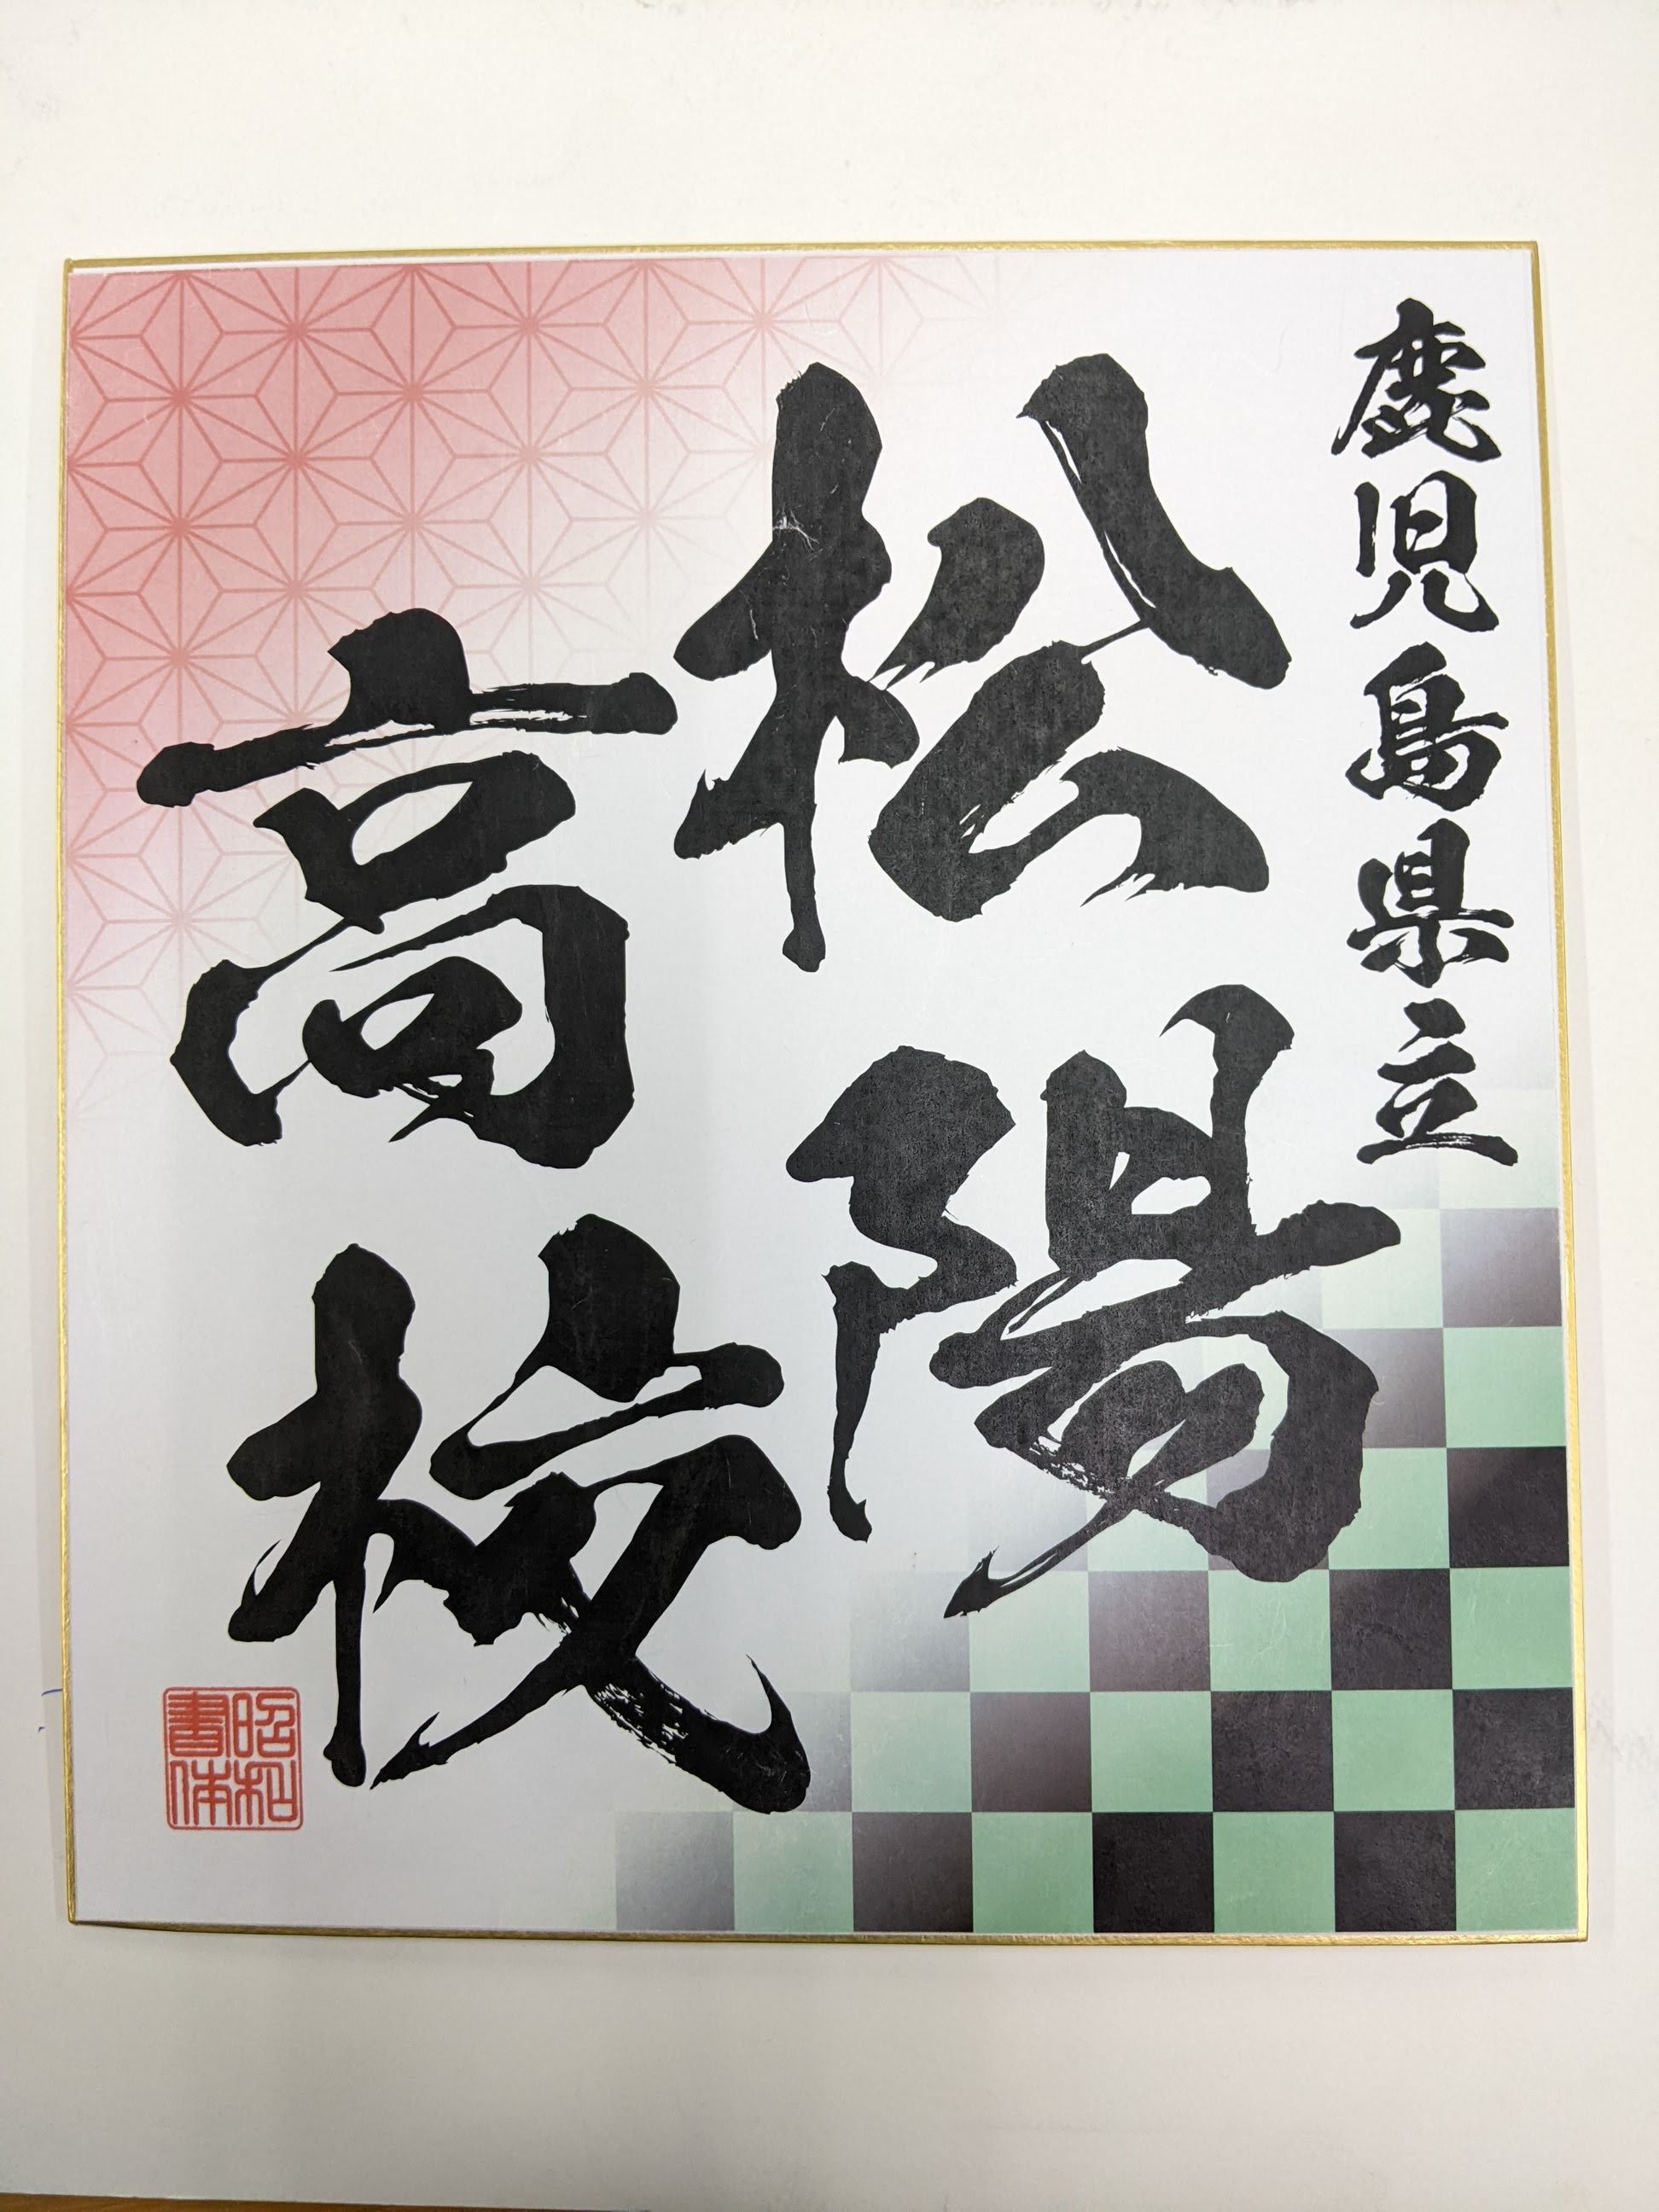 鹿児島県立
松陽
高校
昭和
書体